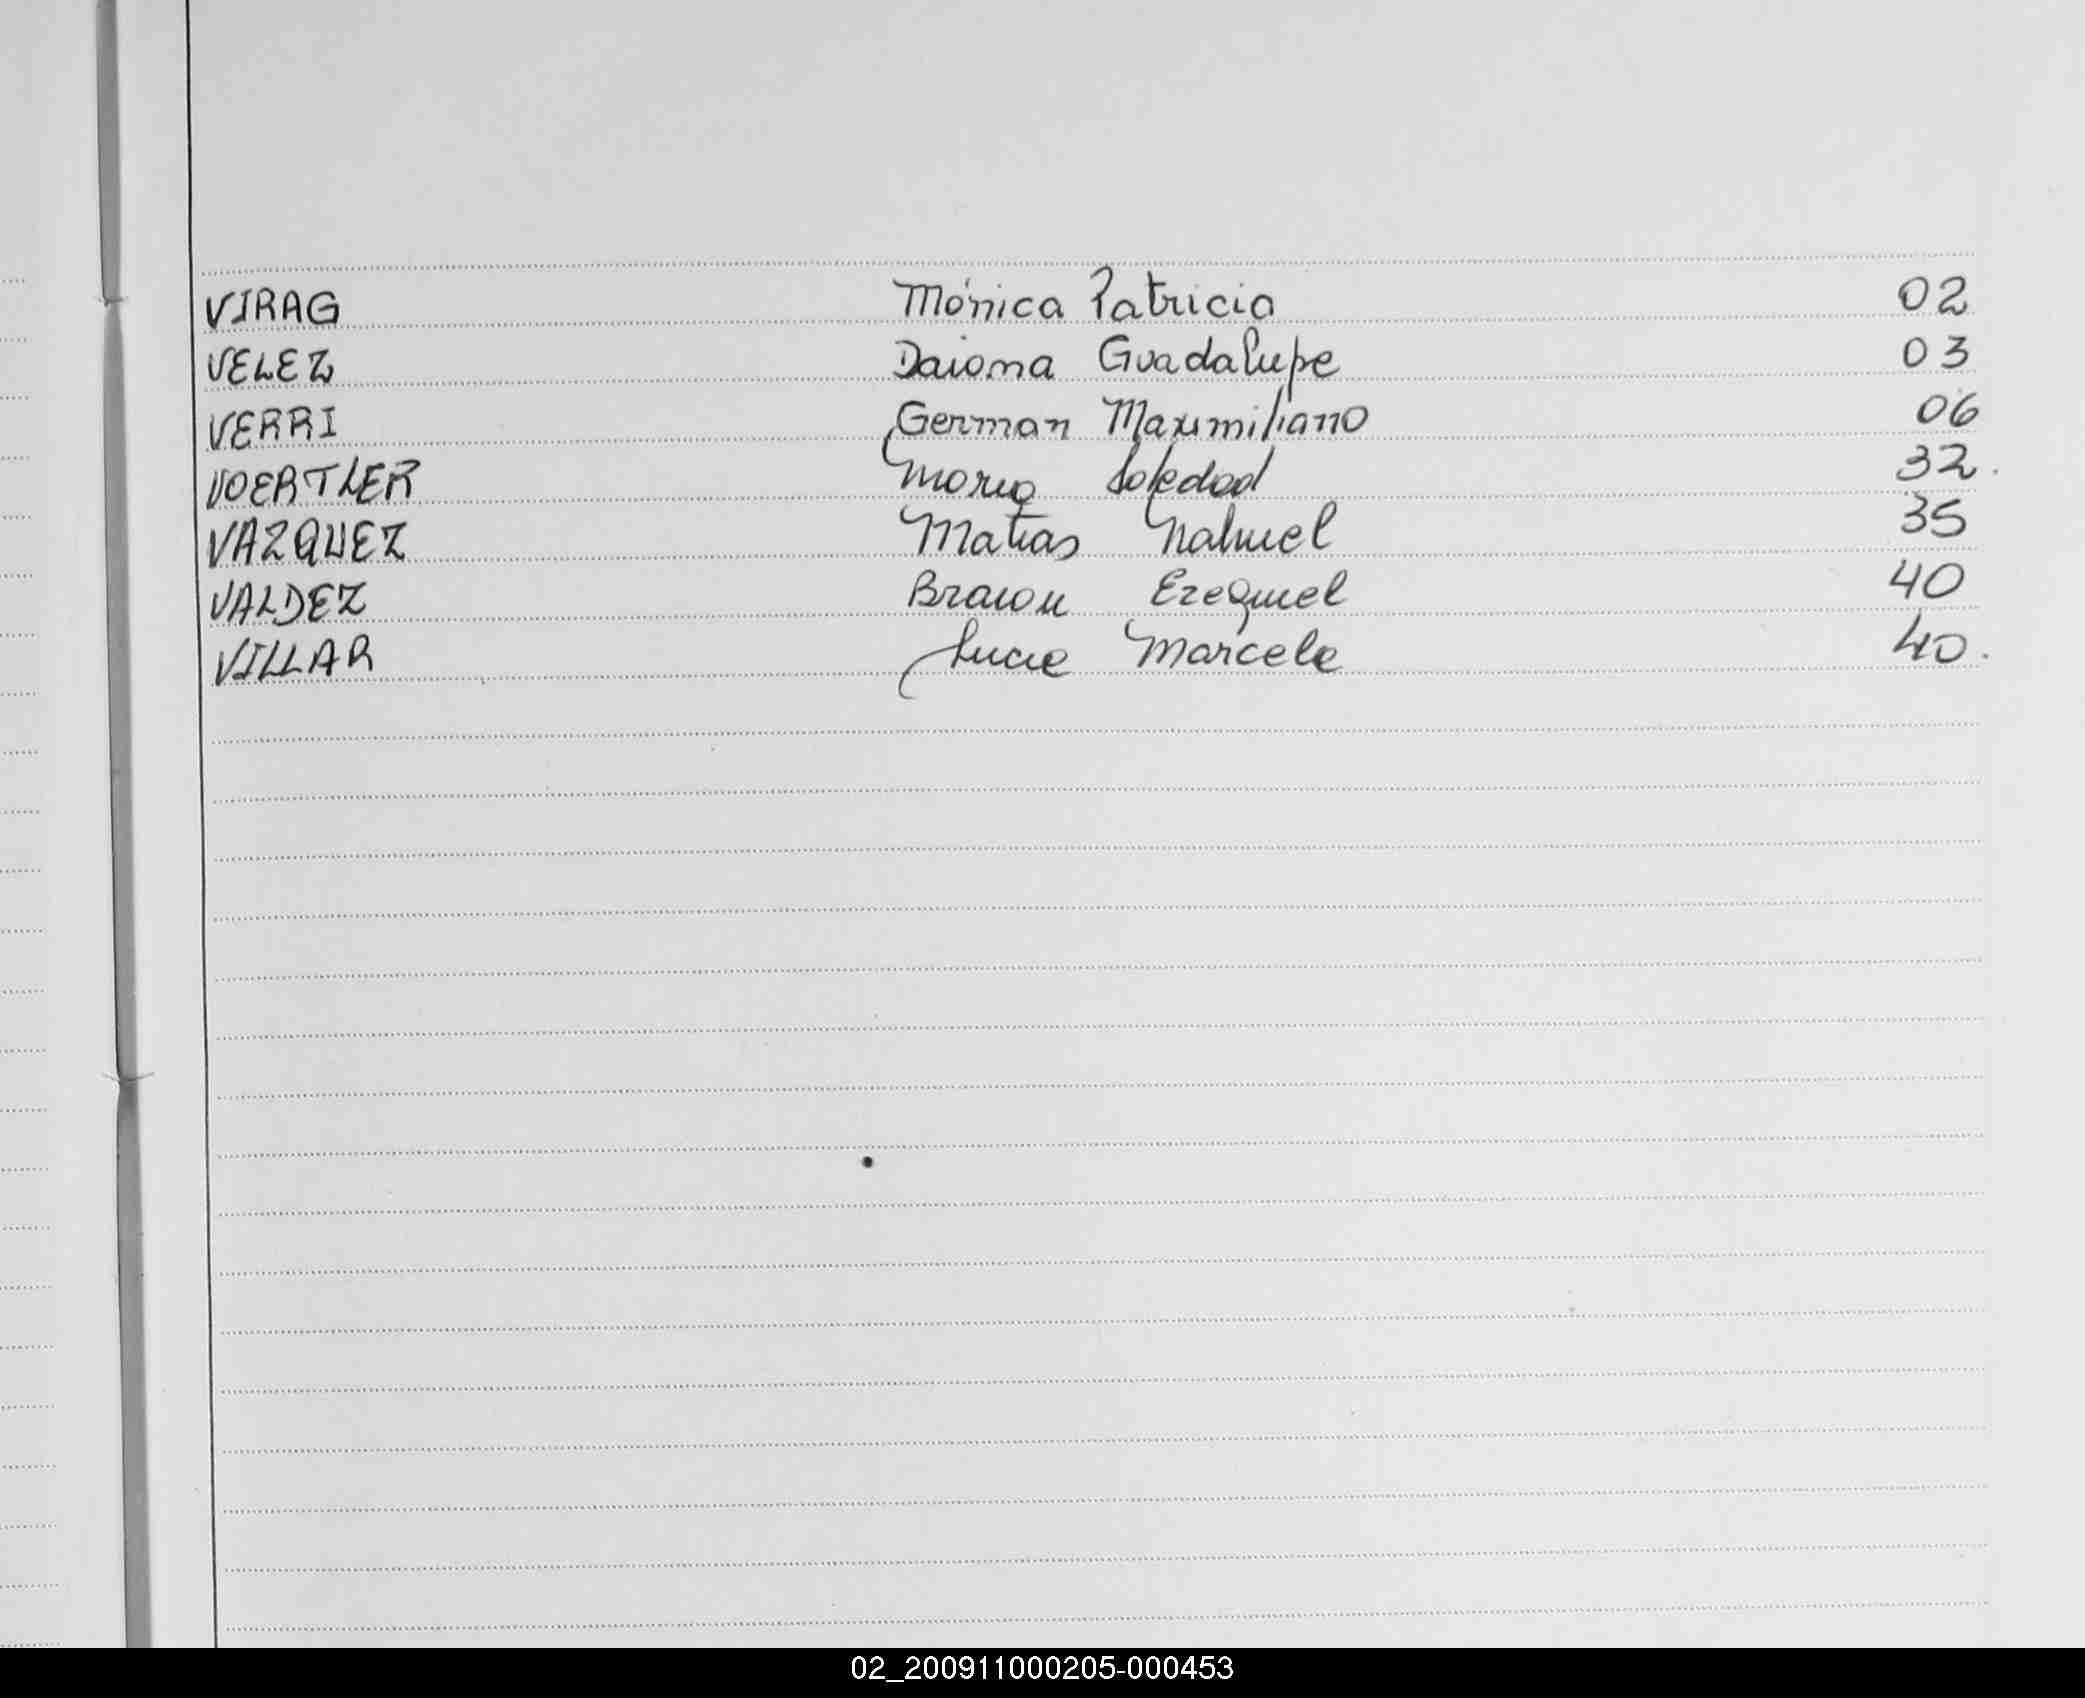 VIRAG Mónica Patricia 02
VELEZ Daiana Guadalupe 03
VERRI German Maximiliano 06
VOERTLER Maria Soledad 32.
VAZQUEZ Matias Nahuel 35
VALDEZ Braian Ezequiel 40
VILLAR Lucia Marcela 40.
02_200911000205-000453